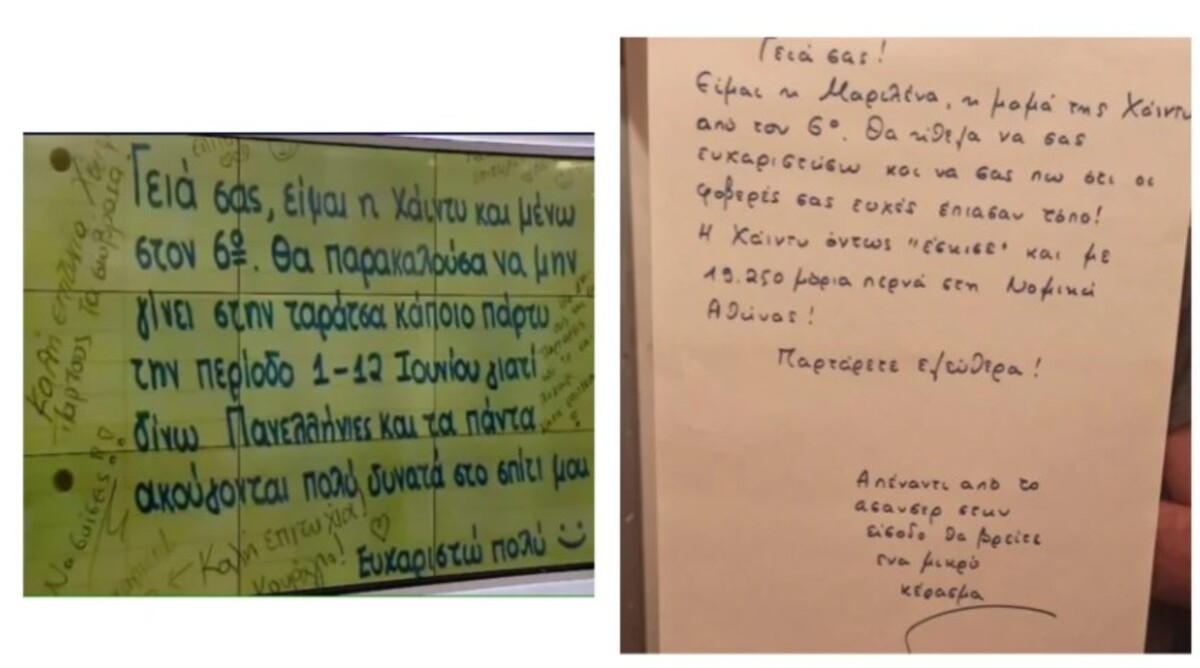 Γειά σας, είμαι η Χάιντυ και μένω
στον 6º. Θα παρακαλούσα να μην
γίνει στην ταράτσα κάποιο πάρτυ
την περίοδο 1-12 Ιουνίου γιατί
δίνω Πανελλήνιες και τα πάντα
ακούγονται πολύ δυνατά στο σπίτι μου
Ευχαριστώ πολύ
Καλή επιτυχία!
Κουράγιο!
Να σκίσεις!
Καλή επιτυχία
Γειά σας!
Είμαι η Μαριλένα, η μαμά της Χάιντυ
από τον 6º. Θα ήθελα να σας
ευχαριστήσω και να σας πω ότι οι
φοβερές σας ευχές έπιασαν τόπο!
Η Χάιντυ όντως "έσκισε" και με
19.250 μόρια περνά στη Νομική
Αθήνας!
Παρτάρετε ελεύθερα!
Απέναντι από το
ασανσερ στην
είσοδο θα βρείτε
ενα μικρό
κέρασμα